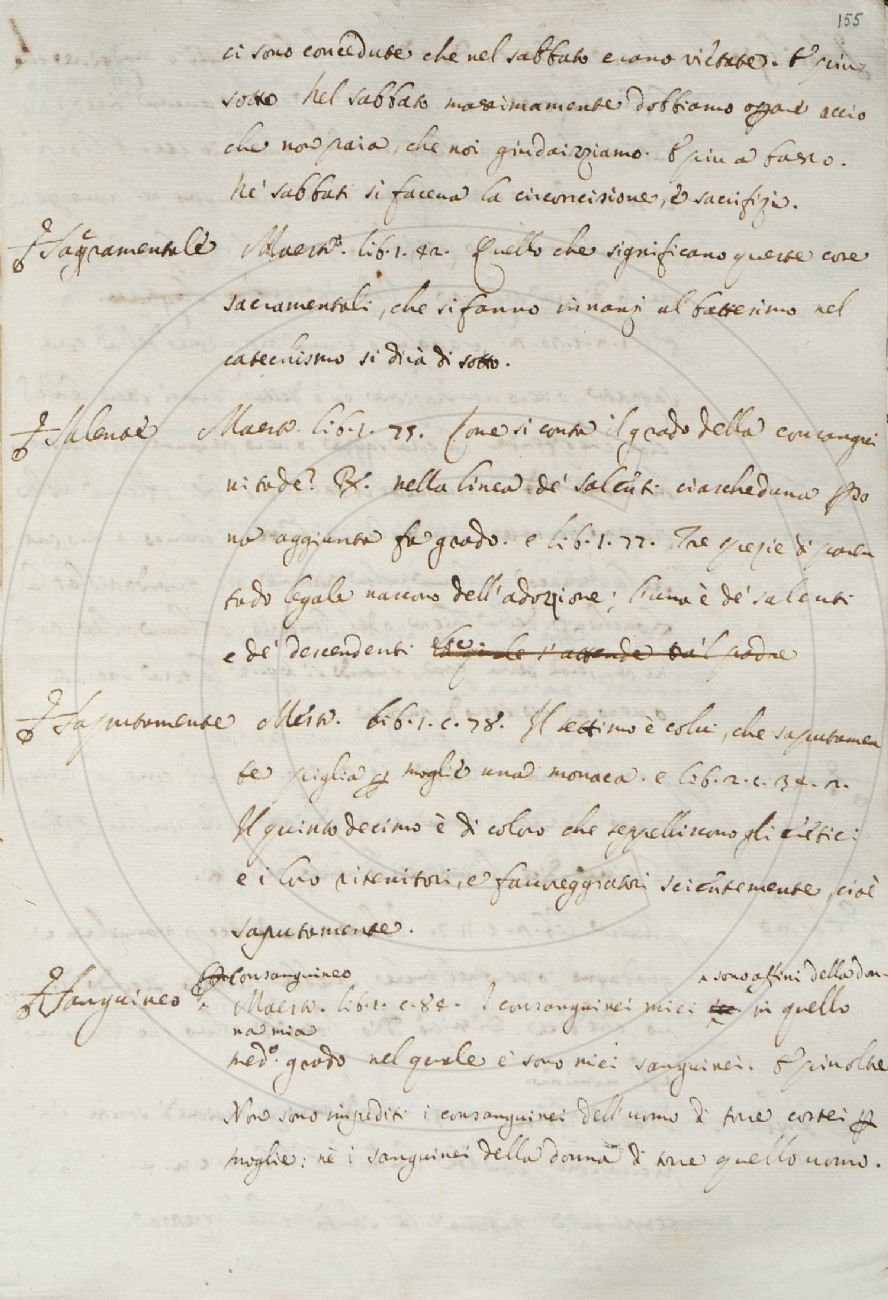 155
ci sono concedute che nel sabbato erano vietate. E piu
sotto Nel sabbato massimamente dobbiamo accio
che non paia, che noi giudaizziamo. E piu a basso.
Ne' sabbati si faceva la circoncisione, e sacrifizi.
Sagramentale Maestr. lib. 1. 42. Quello che significano queste cose
sacramentali, che si fanno innanzi al battesimo nel
catechismo si dirà di sotto.
Salente Maestr. lib. 1. 75. Come si conta il grado della consangui
nitade? R. nella linea de' salenti ciascheduna perso
na aggiunta fa grado. e lib. 1. 77. Tre spezie di paren
tado legale nascono dell'adozione; l'una è de' salenti
e de' descendenti
Saputamente Maestr. lib. 1. c. 78. Il settimo è colui, che saputamen
te piglia per moglie una monaca. e lib. 2. c. 34. 2.
Il quinto decimo è di coloro che seppelliscono gli eretici
e i loro ritenitori, e favoreggiatori scientemente, cioè
saputamente.
Sanguineo Consanguineo sono affini della don-
Maestr. lib. 1. c. 84. I consanguinei miei in quello
na mia
med.o grado nel quale e' sono miei sanguinei. E piu oltre
Non sono impediti i consanguinei dell'uomo di torre costei per
moglie: nè i sanguinei della donna di torre quello uomo.